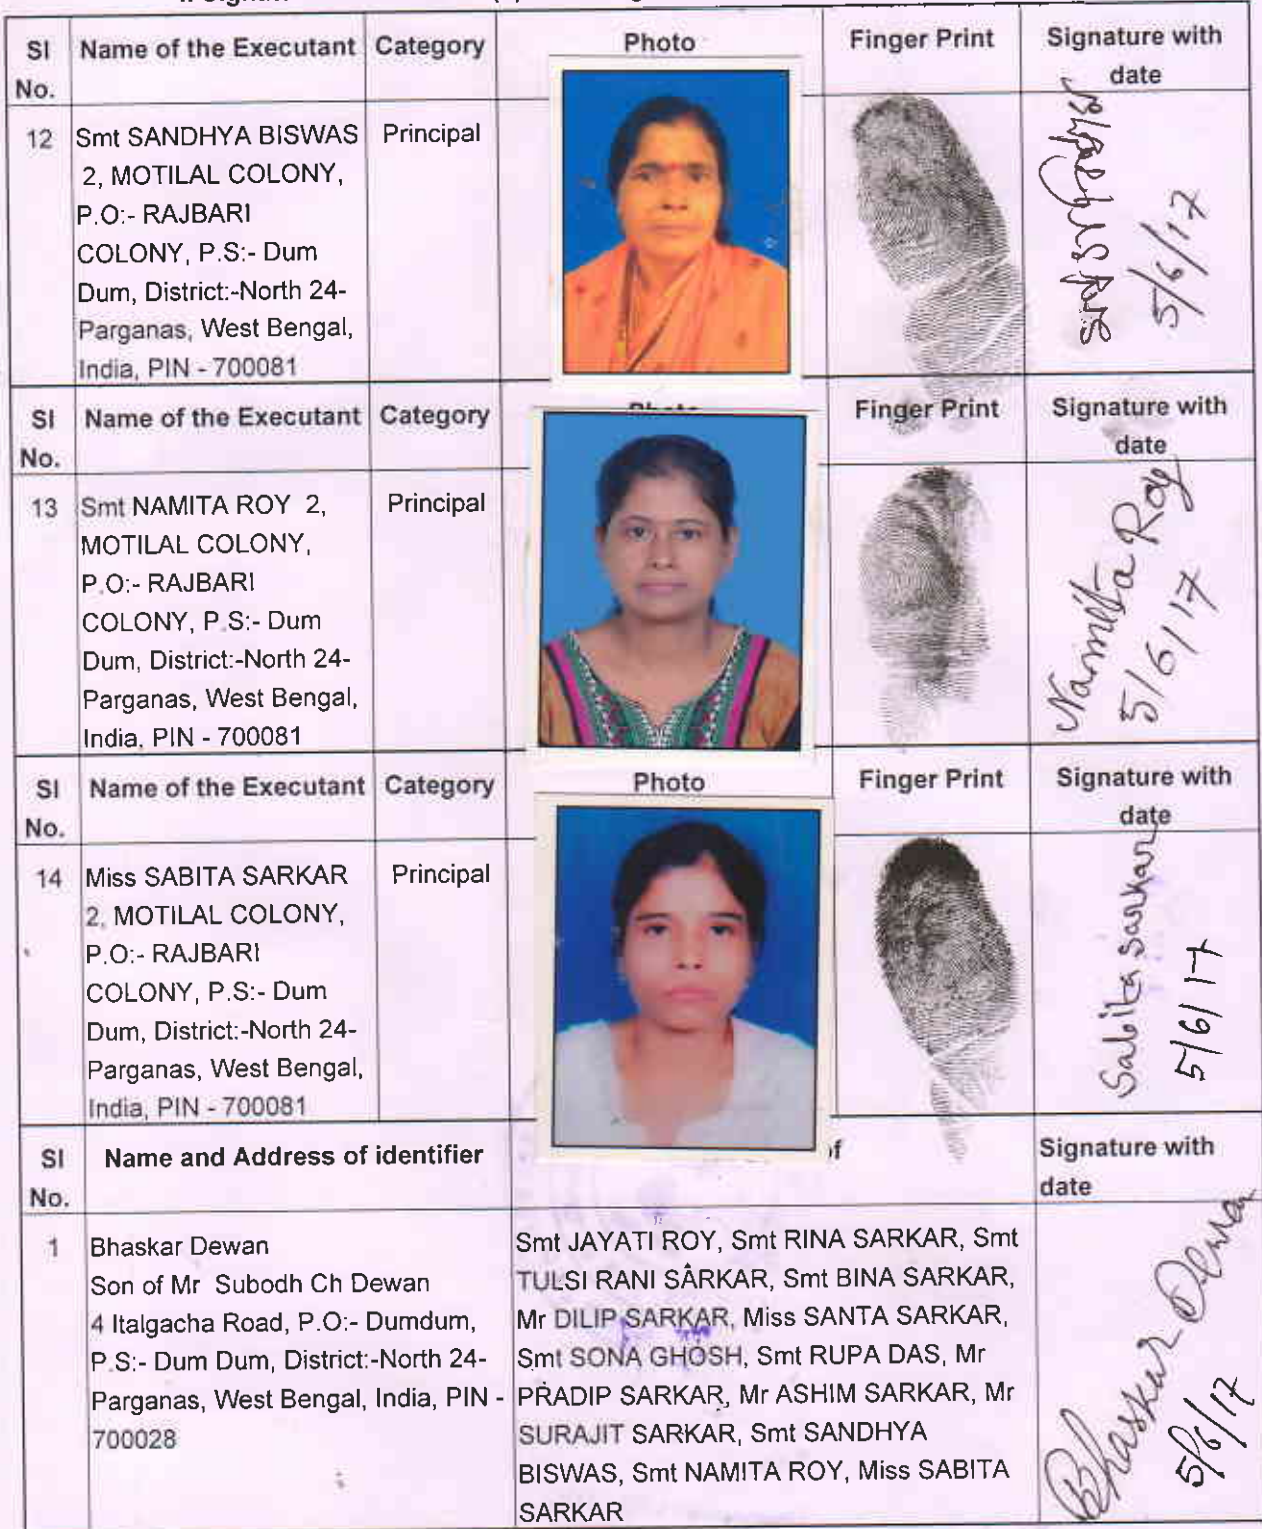 SI No. Name of the Executant Category Photo Finger Print Signature with date
12 Smt SANDHYA BISWAS Principal
2, MOTILAL COLONY,
P.O:- RAJBARI
COLONY, P.S:- Dum
Dum, District:-North 24-
Parganas, West Bengal,
India, PIN - 700081
5/6/17
SI No. Name of the Executant Category Photo Finger Print Signature with date
13 Smt NAMITA ROY 2, Principal
MOTILAL COLONY,
P.O:- RAJBARI
COLONY, P.S:- Dum
Dum, District:-North 24-
Parganas, West Bengal,
India, PIN - 700081
Namita Roy
5/6/17
SI No. Name of the Executant Category Photo Finger Print Signature with date
14 Miss SABITA SARKAR Principal
2, MOTILAL COLONY,
P.O:- RAJBARI
COLONY, P.S:- Dum
Dum, District:-North 24-
Parganas, West Bengal,
India, PIN - 700081
Sabita Sarkar
5/6/17
SI No. Name and Address of identifier of Signature with date
1 Bhaskar Dewan
Son of Mr Subodh Ch Dewan
4 Italgacha Road, P.O:- Dumdum,
P.S:- Dum Dum, District:-North 24-
Parganas, West Bengal, India, PIN -
700028
Smt JAYATI ROY, Smt RINA SARKAR, Smt
TULSI RANI SARKAR, Smt BINA SARKAR,
Mr DILIP SARKAR, Miss SANTA SARKAR,
Smt SONA GHOSH, Smt RUPA DAS, Mr
PRADIP SARKAR, Mr ASHIM SARKAR, Mr
SURAJIT SARKAR, Smt SANDHYA
BISWAS, Smt NAMITA ROY, Miss SABITA
SARKAR
Bhaskar Dewan
5/6/17